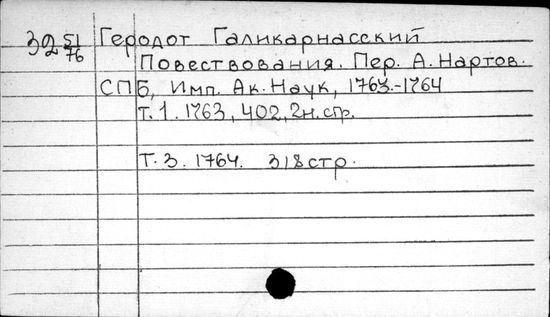 32 51/76 Геродот Галикарнасский
Повествования. Пер. А. Нартов.
СПБ, Имп. Ак. Наук, 1763.-1764
т. 1. 1763, 402, 2н. стр.
Т. 3. 1764. 318 стр.